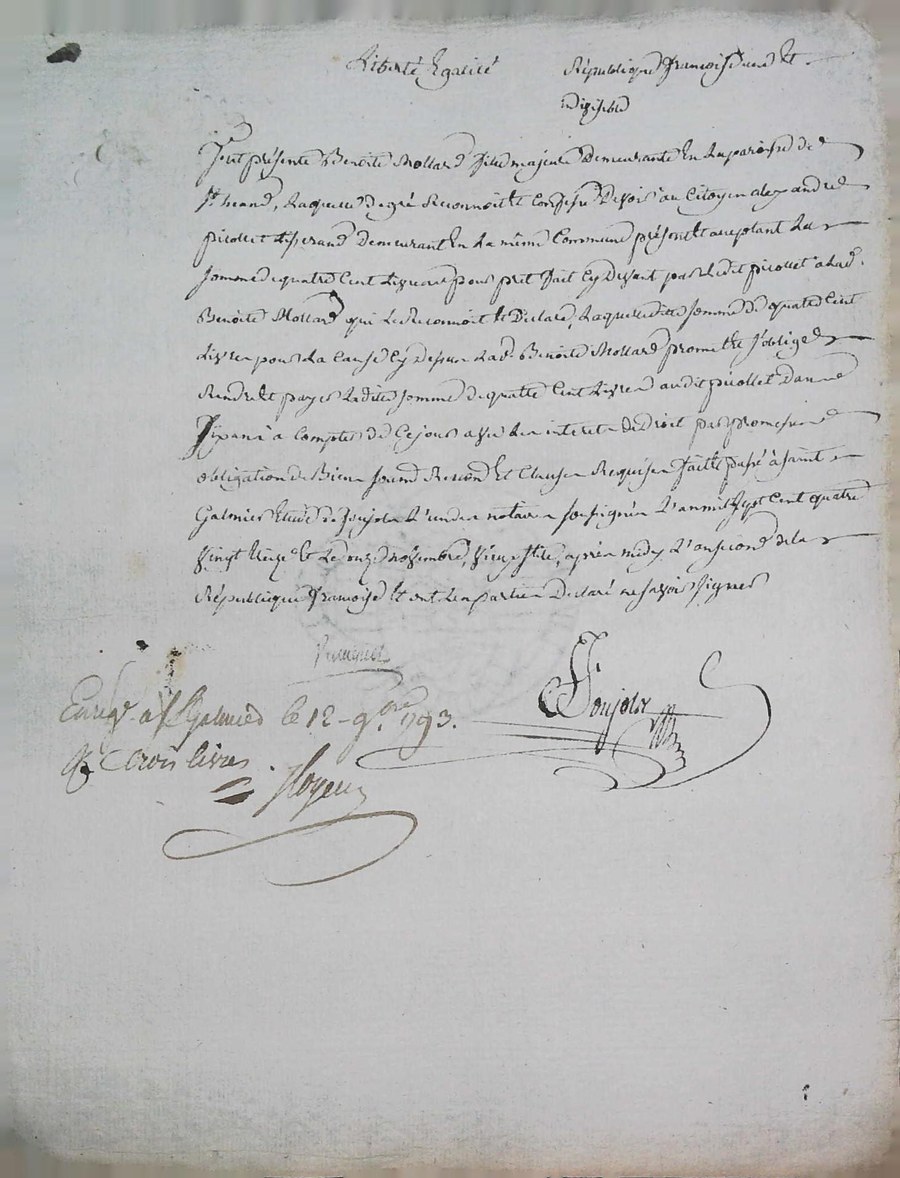 Liberté, Egalité
République francoise une et
indivisible
fut présente Benoite Mollard fille majeure demeurante en la paroisse de
St heand, Laquelle de gré Reconnoit et confesse devoir au Citoyen alexandre
picollet tisserand demeurant en la même Commune présent et aceptant La
somme de quatre Cent Livres pour prêt fait Cy devant par Ledit picollet a Lad.
Benoite Mollard qui Le Reconnoit et Declare, Laquelle dite somme de quatre Cent
Livres pour La Cause Cy dessus Lad. Benoite Mollard promet et s'oblige
Rendre et payer Ladite somme de quatre Cent Livres audit picollet dans
six ans a Compter de Ce jour avec Les interets de Droit par promesses
obligation de Biens soumis Renond et Clauses Requises fait et passé à saint
Galmier Etude de Soujols L'un des notaires soussignés L'an mil sept Cent quatre
vingt treize et Le onze novembre, vieux stile, après midy L'an second de la
République francoise et ont Les parties Declaré ne savoir signer
Soujols
Enreg. a St Galmier le 12 9bre 1793.
R trois livres